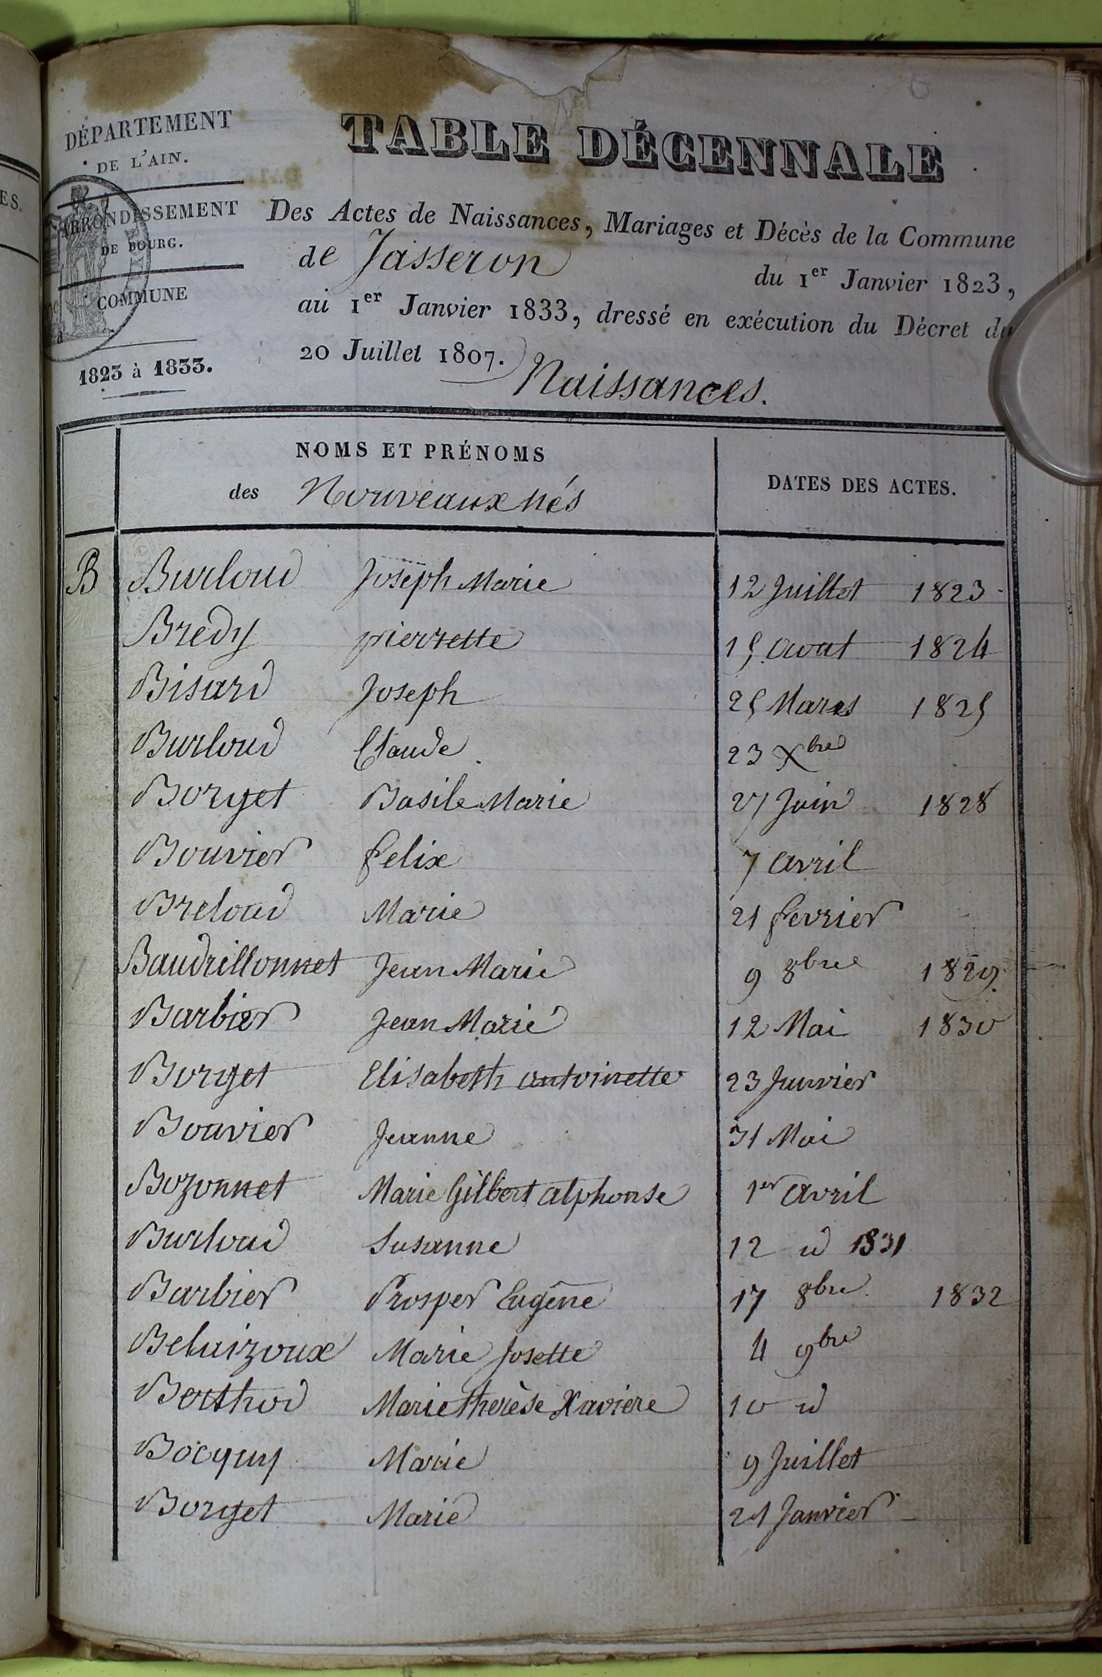 DÉPARTEMENT
DE L'AIN.
ARRONDISSEMENT
DE BOURG.
COMMUNE
1823 à 1833.
TABLE DÉCENNALE
Des Actes de Naissances, Mariages et Décès de la Commune
de Jasseron du 1er Janvier 1823,
au 1er Janvier 1833, dressé en exécution du Décret du
20 Juillet 1807.
Naissances.
NOMS ET PRÉNOMS
des Nouveaux nés
DATES DES ACTES.
B Burloud Joseph Marie 12 Juillet 1823
Bredy pierrette 15 aout 1824
Bisard Joseph 25 Mars 1825
Burloud Claude 23 Xbre
Borget Basile Marie 27 Juin 1828
Bouvier felix 7 avril
Breloud Marie 21 fevrier
Baudrillonnet Jean Marie 9 8bre 1829.
Barbier Jean Marie 12 Mai 1830
Borget Elisabeth antoinette 23 Janvier
Bouvier Jeanne 31 Mai
Bozonnet Marie Gilbert alphonse 1er avril
Burloud Susanne 12 id 1831
Barbier Prosper Eugêne 17 8bre 1832
Belaizoux Marie Josette 4 9bre
Berthod Marie therèse Xaviere 10 id
Bocquy Marie 9 Juillet
Borget Marie 21 Janvier